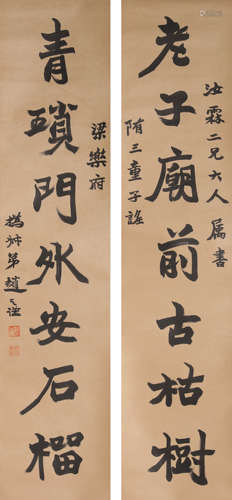 老子廟前古枯樹
汝霖二兄大人屬書
隋三童子謠
青瑣門外安石榴
梁樂府
撝叔弟趙之謙